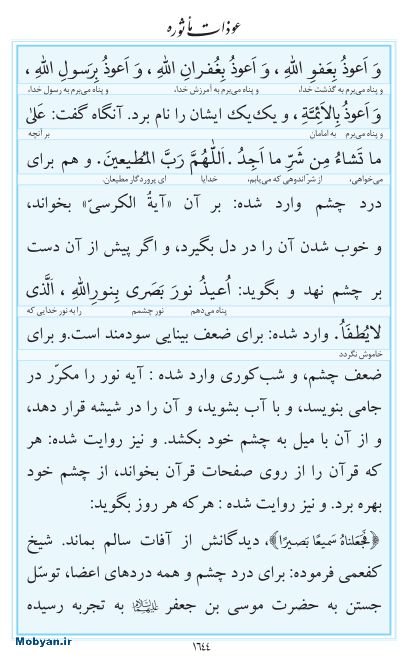 عوذات مأثوره
وَ اَعوذُ بِعَفوِ اللهِ ، وَ اَعوذُ بِغُفرانِ اللهِ ، وَ اَعوذُ بِرَسولِ اللهِ ،
و پناه می‌برم به گذشت خدا، و پناه می‌برم به آمرزش خدا، و پناه می‌برم به رسول خدا،
وَ اَعوذُ بِالاَئِمَّةِ ، و یک‌یک ایشان را نام برد. آنگاه گفت: عَلیٰ
و پناه می‌برم به امامان بر آنچه
ما تَشاءُ مِن شَرِّ ما اَجِدُ . اَللّٰهُمَّ رَبَّ المُطیعینَ. و هم برای
می‌خواهی، از شرّ اندوهی که می‌یابم، خدایا ای پروردگار مطیعان.
درد چشم وارد شده: بر آن «آیةُ الکرسیّ» بخواند،
و خوب شدن آن را در دل بگیرد، و اگر پیش از آن دست
بر چشم نهد و بگوید: اُعیذُ نورَ بَصَری بِنورِاللهِ ، اَلَّذی
پناه می‌دهم نور چشمم را به نور خدایی که
لایُطفَاُ. وارد شده: برای ضعف بینایی سودمند است.و برای
خاموش نگردد
ضعف چشم، و شب‌کوری وارد شده : آیه نور را مکرّر در
جامی بنویسد، و با آب بشوید، و آن را در شیشه قرار دهد،
و از آن با میل به چشم خود بکشد. و نیز روایت شده: هر
که قرآن را از روی صفحات قرآن بخواند، از چشم خود
بهره برد. و نیز روایت شده : هرکه هر روز بگوید:
﴿فَجَعَلناهُ سَمیعًا بَصیرًا﴾، دیدگانش از آفات سالم بماند. شیخ
کفعمی فرموده: برای درد چشم و همه دردهای اعضا، توسّل
جستن به حضرت موسی بن جعفر علیهما السلام به تجربه رسیده
Mobyan.ir
١٦٤٤